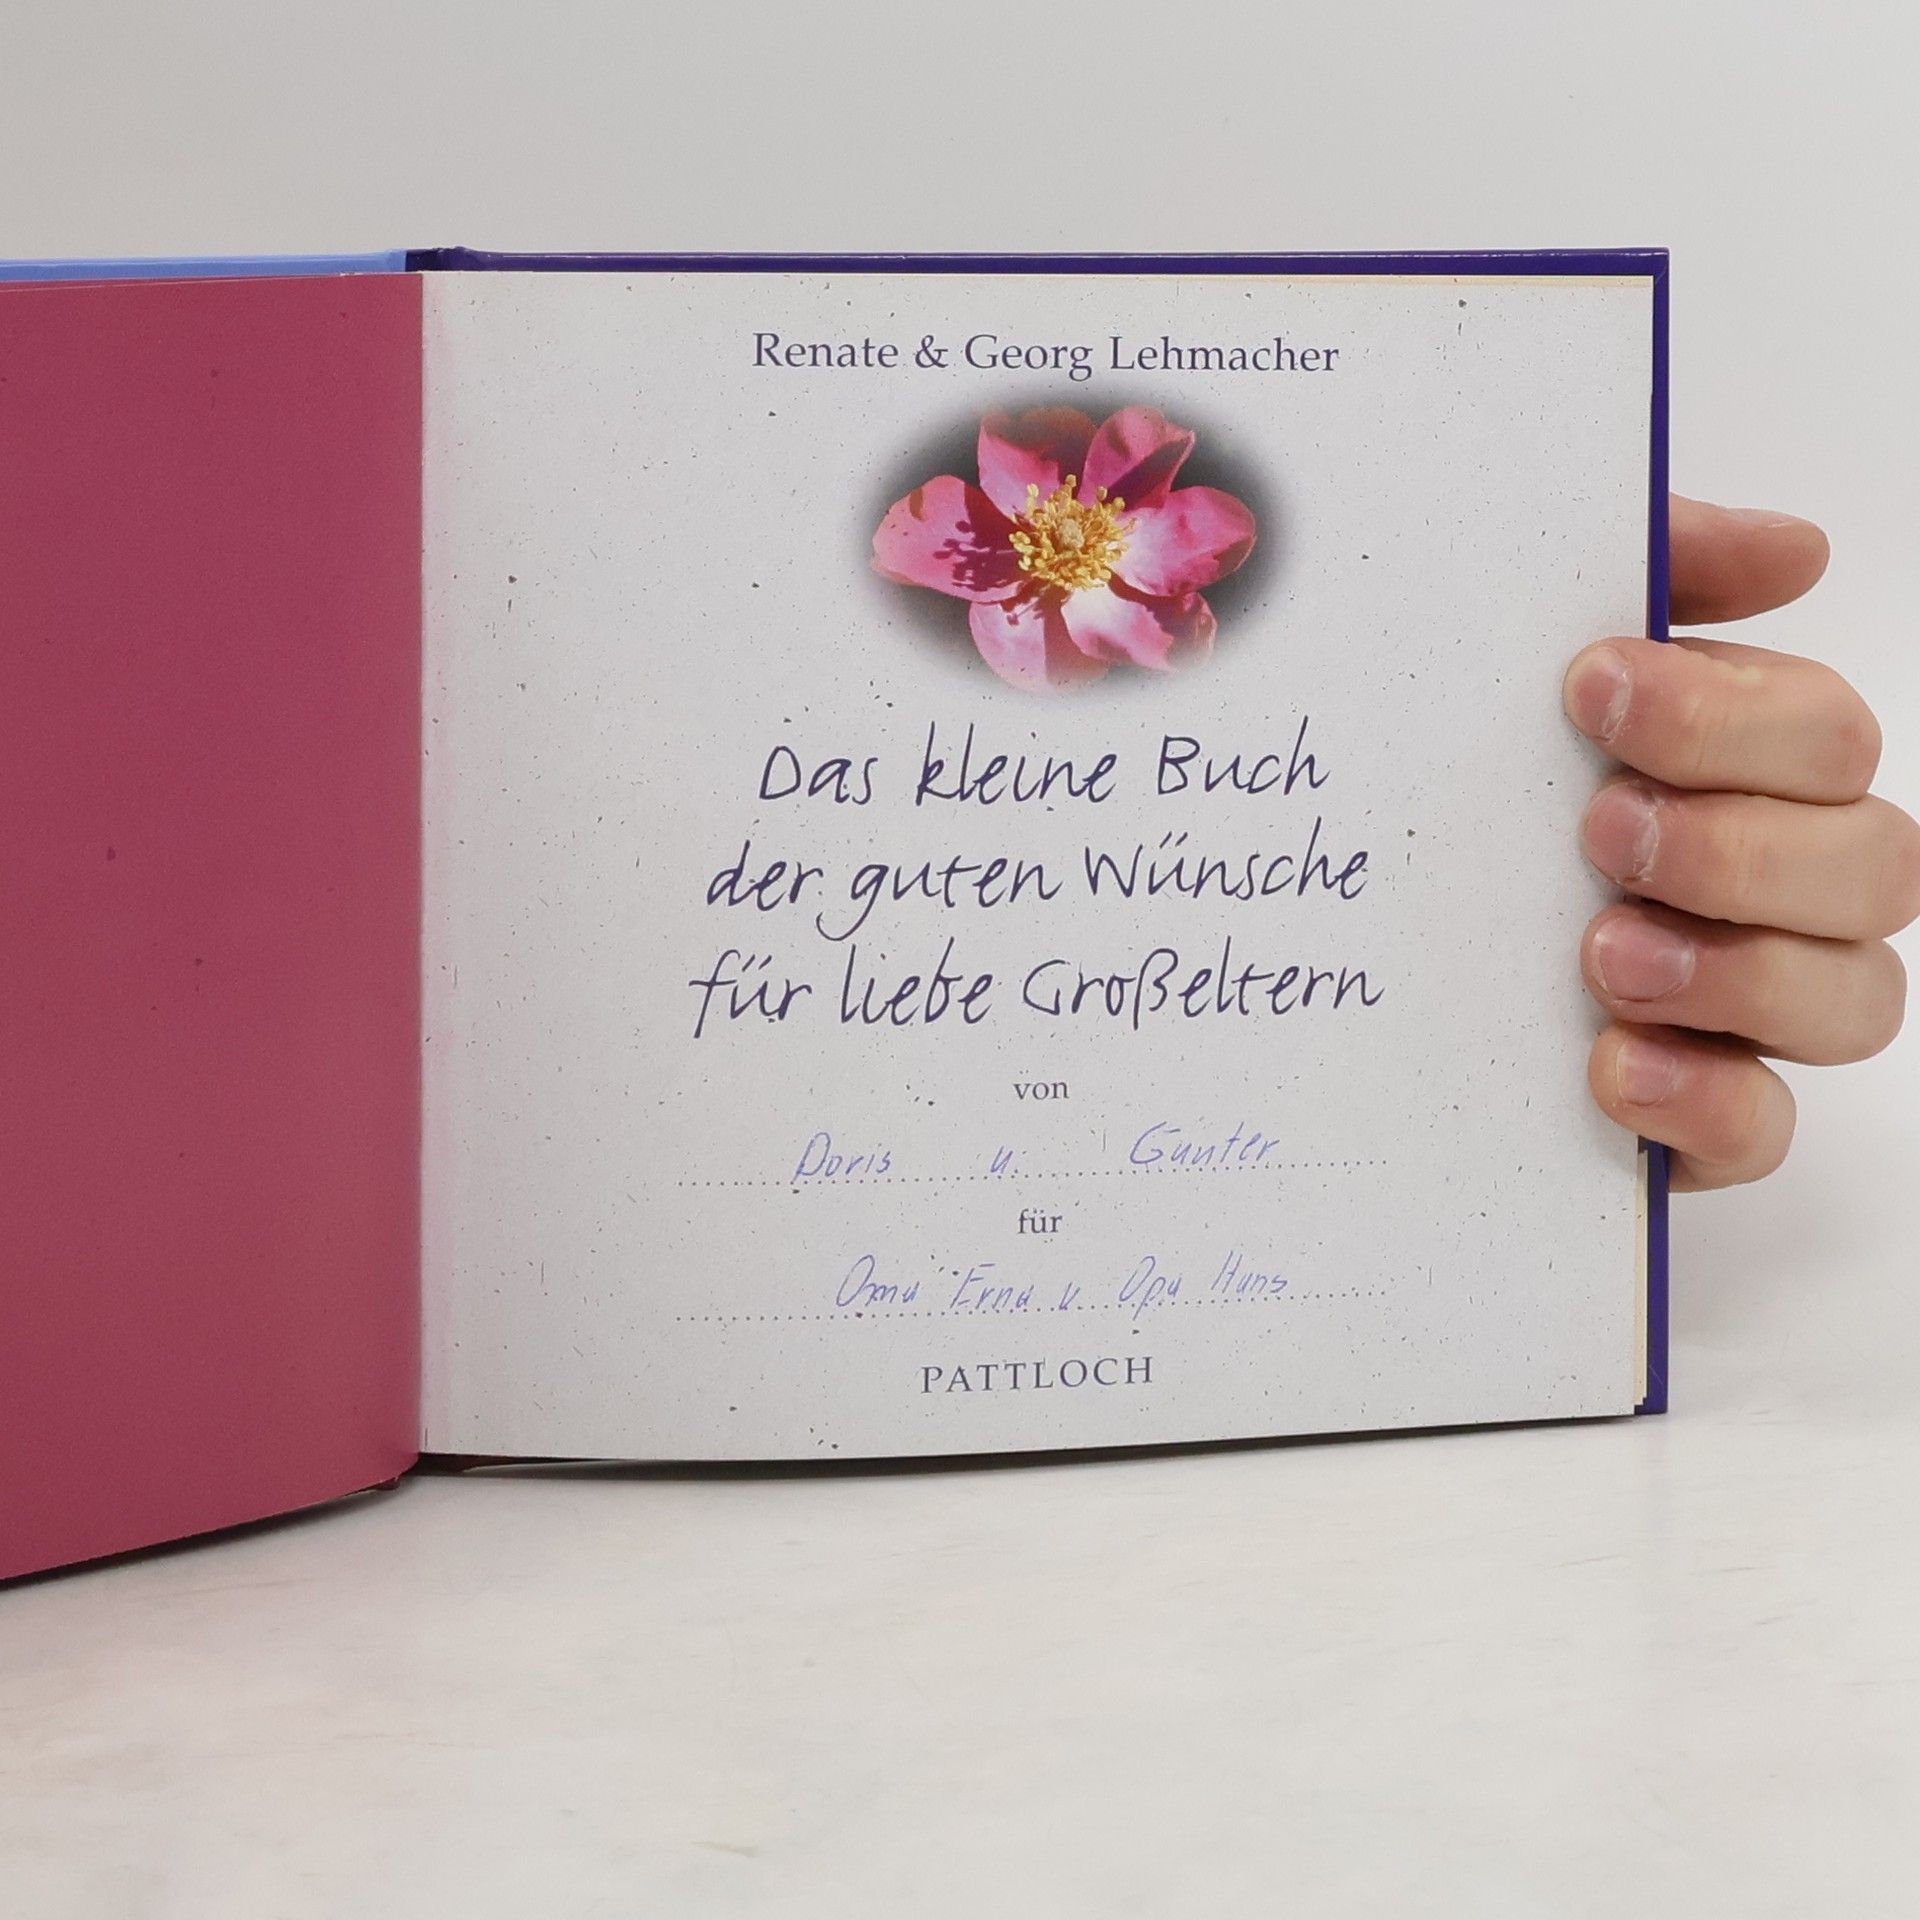 Renate & Georg Lehmacher
Das kleine Buch
der guten Wünsche
für liebe Großeltern
von
Doris u. Günter
für
Oma Erna u Opa Hans
PATTLOCH